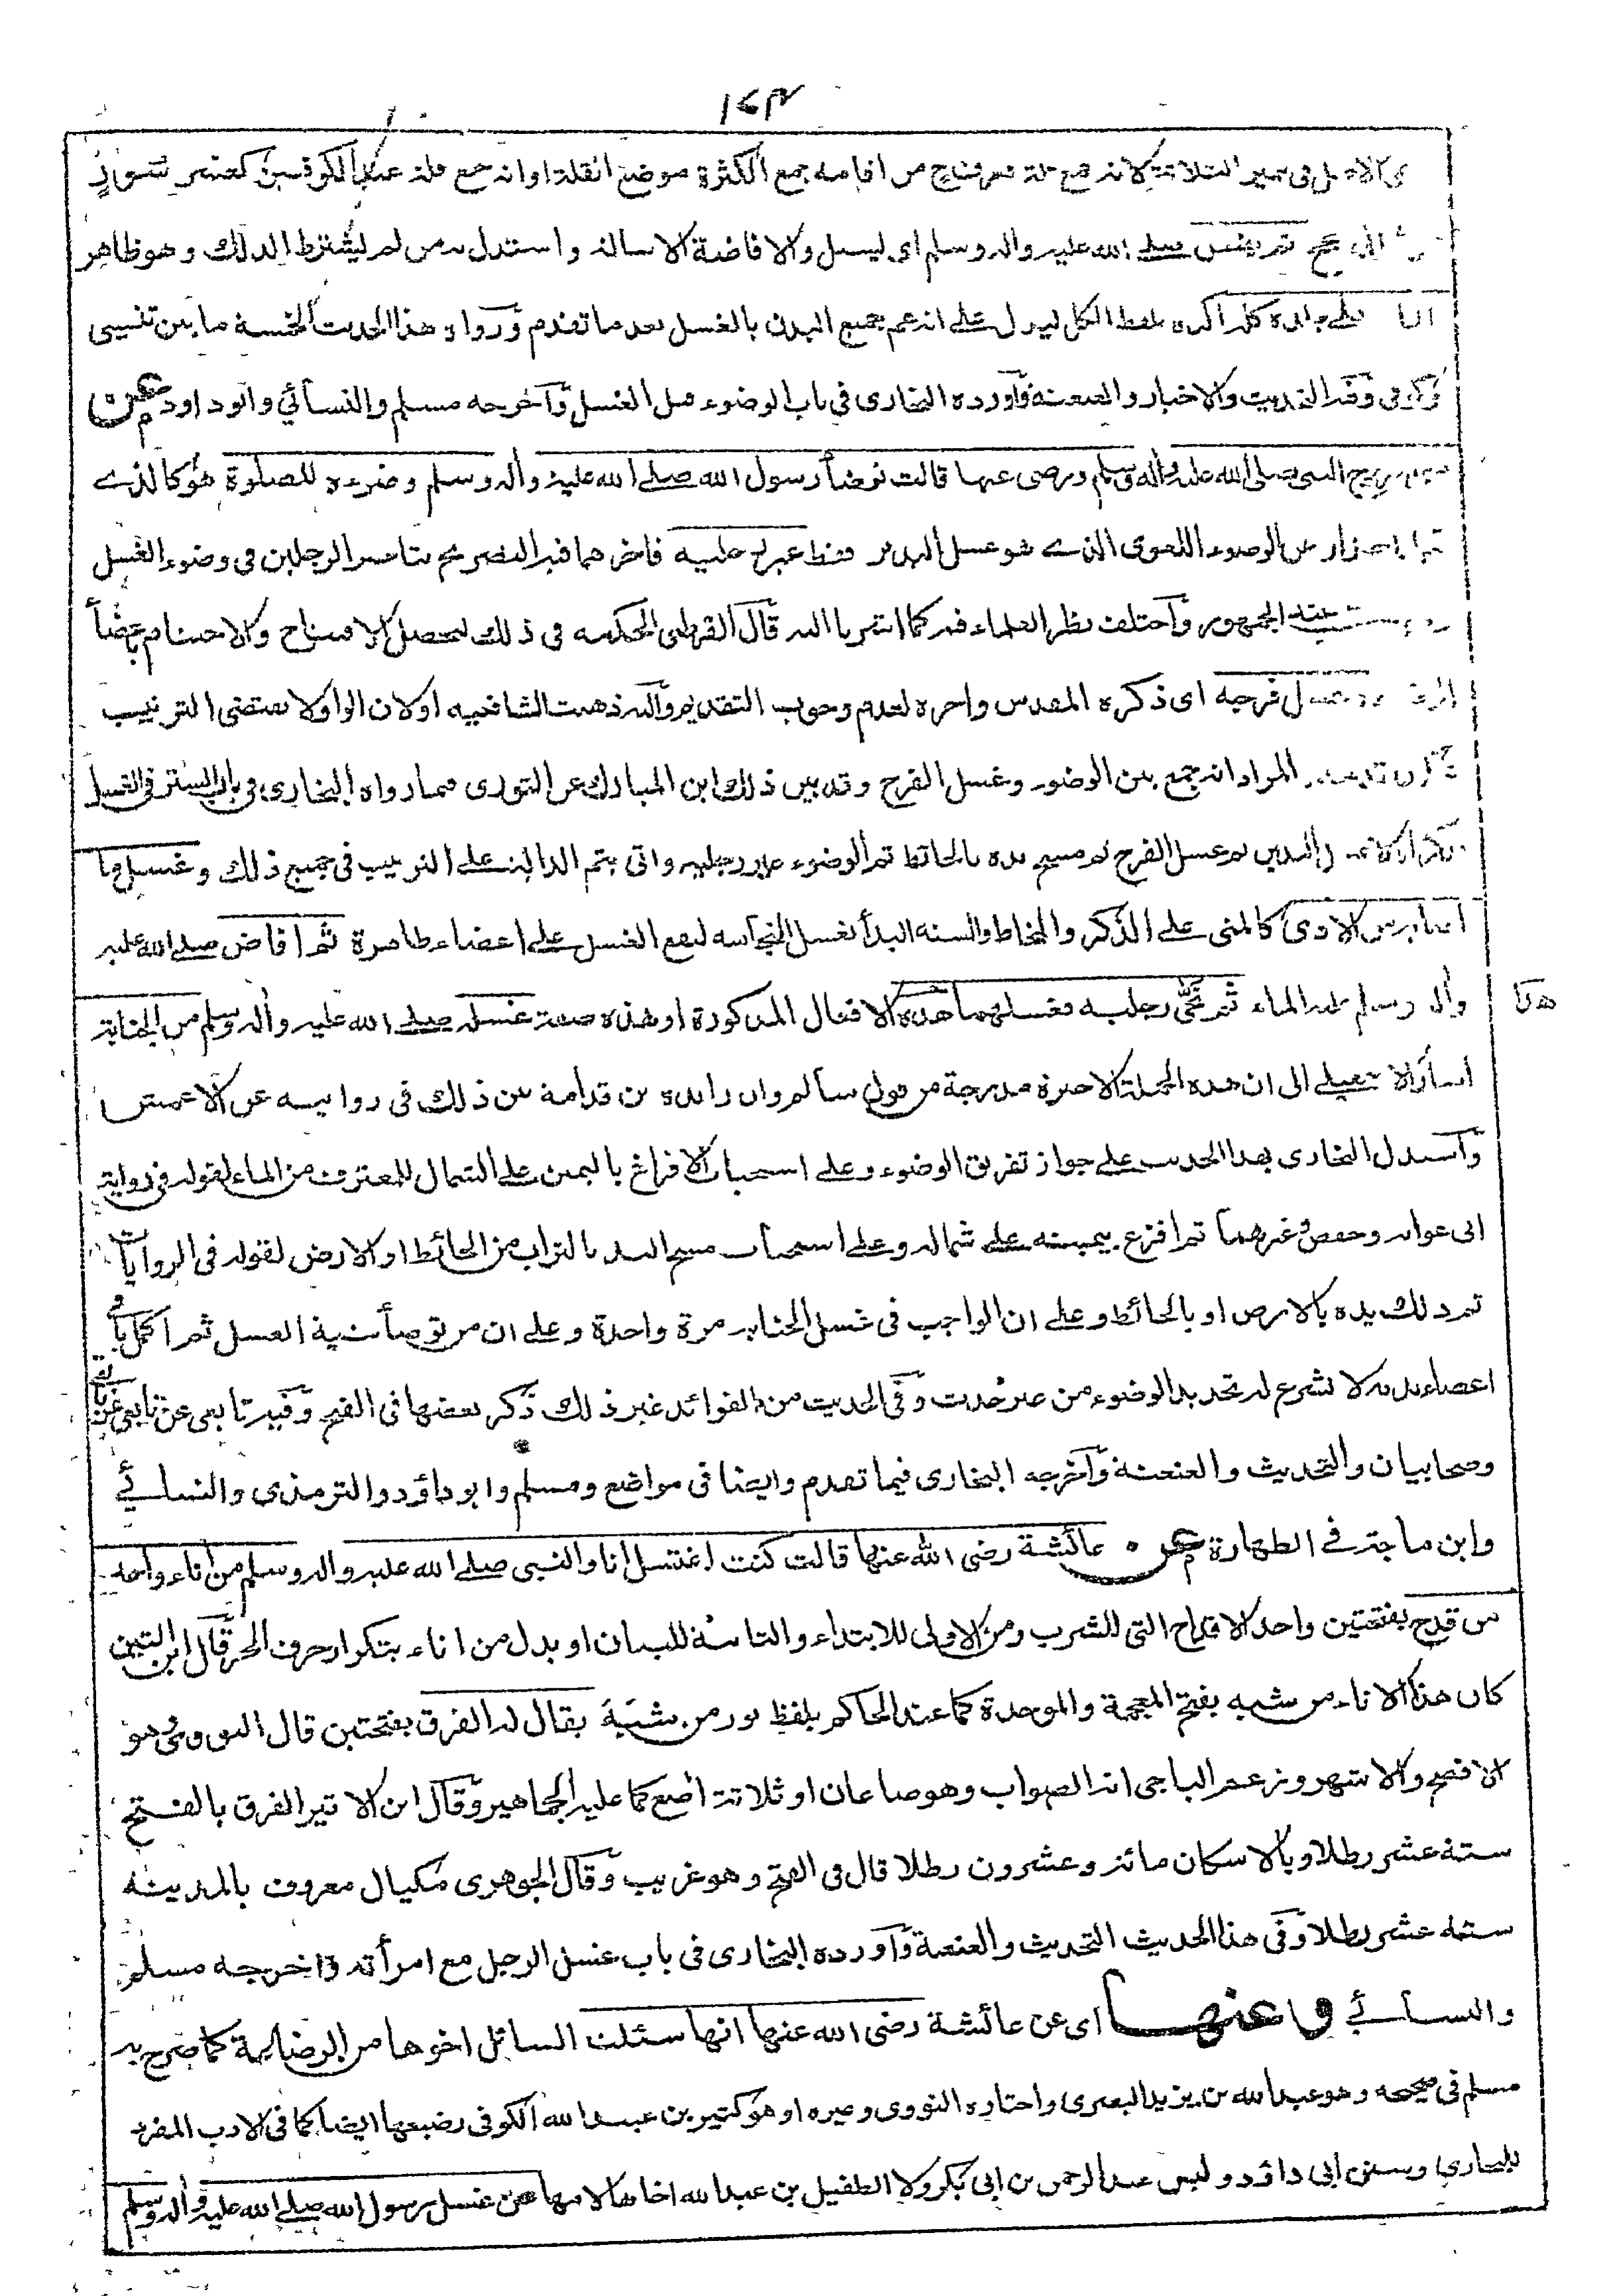 ١٧٣
الاصل فى مميز الثلاثة لانه جمع قلة من اقامه جمع الكثرة موضع القلة او انه جمع قلة عند الكوفيين كعشر سور
ثم يفيض صلى الله عليه واله وسلم اى يسيل والافاضة الاسالة واستدل به من لم يشترط الدلك وهو ظاهر
على جلده كله اكده بلفظ الكل ليدل على انه عم جميع البدن بالغسل بعد ما تقدم ورواة هذا الحديث الخمسة ما بين تنيسى
وكوفى وفيه التحديث والاخبار والعنعنة وأورده البخارى فى باب الوضوء قبل الغسل وأخرجه مسلم والنسائي وابو داود عن
زوج النبى صلى الله عليه واله وسلم ورضى عنها قالت توضأ رسول الله صلى الله عليه واله وسلم وضوءه للصلوة هو كالذى
احتراز عن الوضوء اللغوى الذى هو غسل اليدين فقط غير رجليه فاخرهما فيه التصريح بتاخير الرجلين فى وضوء الغسل
الجمهور وأختلف نظر العلماء فيه كما اشرنا اليه قال القرطبى الحكمة فى ذلك ليحصل الافتتاح والاختتام باعضاء
فرجه اى ذكره المقدس واخره لعدم وجوب التقديم واليه ذهبت الشافعية او لان الواو لا يقتضى الترتيب
المراد انه جمع بين الوضوء وغسل الفرج وقد بين ذلك ابن المبارك عن الثورى فيما رواه البخارى فى باب الستر فى الغسل
اليدين ثم غسل الفرج ثم مسح يده بالحائط ثم الوضوء غير رجليه واتى بثم الدالة على الترتيب فى جميع ذلك وغسل ما
اصابه من الاذى كالمنى على الذكر والمخاط والسنة البدأ بغسل النجاسة ليقع الغسل على اعضاء طاهرة ثم افاض صلى الله عليه
واله وسلم عليه الماء ثم نحى رجليه فغسلهما هذه الافعال المذكورة او هذه صفة غسله صلى الله عليه واله وسلم من الجنابة
هذا
اشار الاسمعيلى الى ان هذه الجملة الاخيرة مدرجة من قول سالم وان زائدة بن قدامة بين ذلك فى روايته عن الاعمش
وأستدل البخارى بهذا الحديث على جواز تفريق الوضوء وعلى استحباب الافراغ باليمين على الشمال للمعترف من الماء لقوله فى رواية
ابى عوانه وحفص وغيرهما ثم افرغ بيمينه على شماله وعلى استحباب مسح اليد بالتراب من الحائط او الارض لقوله فى الروايات
ثم دلك يده بالارض او بالحائط وعلى ان الواجب فى غسل الجنابة مرة واحدة وعلى ان من توضأ بنية الغسل ثم اكمل باقى
اعضاء بدنه لا يشرع له تجديد الوضوء من غير حدث وفى الحديث من الفوائد غير ذلك ذكر بعضها فى الفتح وفيه تابعى عن تابعى عن تابعى
وصحابيان والتحديث والعنعنة وأخرجه البخارى فيما تقدم وايضا فى مواضع ومسلم وابو داؤد والترمذى والنسائي
وابن ماجة فى الطهارة عن عائشة رضى الله عنها قالت كنت اغتسل انا والنبى صلى الله عليه واله وسلم من اناء واحد
من قدح بفتحتين واحد الاقداح التى للشرب ومن الاولى للابتداء والثانية للبيان او بدل من اناء بتكرار حرف الجر قال ابن التين
كان هذا الاناء من شبه بفتح المعجمة والموحدة كما عند الحاكم بلفظ تور من شبة يقال له الفرق بفتحتين قال النووى وهو
الافصح والاشهر وزعم الباجى انه الصواب وهو صاعان او ثلاثة اصع كما عليه الجماهير وقال ابن الاثير الفرق بالفتح
ستة عشر رطلا وبالاسكان مائة وعشرون رطلا قال فى الفتح وهو غريب وقال الجوهرى مكيال معروف بالمدينة
ستة عشر رطلا وفى هذا الحديث التحديث والعنعنة وأورده البخارى فى باب غسل الرجل مع امرأته واخرجه مسلم
والنسائي وعنها اى عن عائشة رضى الله عنها انها سئلت السائل اخوها من الرضاعة كما صرح به
مسلم فى صحيحه وهو عبد الله بن يزيد البصرى واختاره النووى وغيره او هو كثير بن عبد الله الكوفى رضيعها ايضا كما فى الادب المفرد
للبخارى وسنن ابى داؤد وليس عبد الرحمن بن ابى بكر ولا الطفيل بن عبد الله اخاها لامها عن غسل رسول الله صلى الله عليه واله وسلم